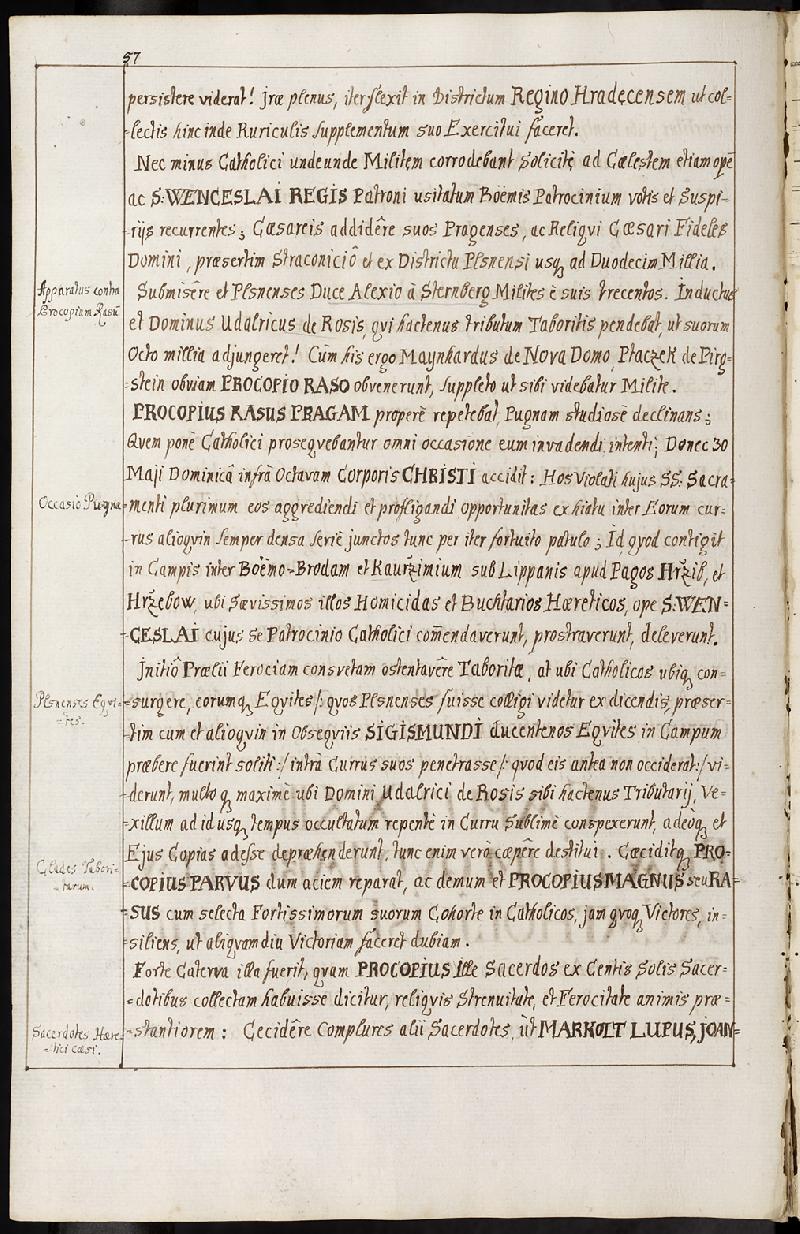 57
persistere viderat! jræ plenus, iter flexit in Districtum Regino Hradęcensem ut col=
=lectis hinc inde Ruriculis supplementum suo Exercitui faceret.
Nec minus Catholici undeunde Militem corrodebant Solicitè ad Cælestem etiam opē
ac S: WENCESLAI REGIS Patroni usitatum Boëmis Patrocinium votis et Suspi=
=rijs recurrentes; Cæsareis addidêre suos Pragenses, ac Reliqvi Cæsari Fideles
Domini, præsertim Straconiciô et ex Districtu Plsnensi usq, ad Duodecim Millia.
Apparatus contra
Procopium Rasū
Submisêre et Plsnenses Duce Alexio à Sternberg Milites è suis trecentos. Inductus
et Dominus Udalricus de Rosis, qvi hactenus tributum Taboritis pendebat, ut suorum
Octo millia adjungeret! Cum his ergo Maynhardus de Nova Domo, Ptaczek de Pirg=
=stein obviam PROCOPIO RASO obvenerunt, suppleto ut sibi videbatur Milite.
PROCOPIUS RASUS PRAGAM properè repetebat, Pugnam studiosè declinans;
Qvem ponè Catholici proseqvebantur omni occasione eum invadendi intenti; Donec 30
Maji Dominicâ infrà Octavam Corporis CHRISTI accidit: Hos Violati hujus SS: Sacra=
Occasio Pugnæ
=menti plurimum eos aggrediendi et profligandi opportunitas ex hiatu inter Eorum cur=
=rus alioqvin semper densa seriè junctos tunc per iter fortuito patulo; Id qvod contigit
in Campis inter Boëmo-Brodam et Kauržimium sub Lippanis apud Pagos Hržib, et
Hržebow, ubi Sævissimos illos Homicidas et Buchtarios Hæreticos, ope S: WEN=
=CESLAI cujus se Patrocinio Catholici com̄endaverunt, prostraverunt, deleverunt.
Jnitiô Prælii Ferociam consvetam ostentavêre Taboritæ, at ubi Catholicos ubiq, con=
Plsnenses Eqvi=
=tes.
=surgere, eorumq, Eqvites /: qvos Plsnenses fuisse colligi videtur ex dicendis, præser=
=tim cum et alioqvin in Obseqviis SIGISMUNDI ducentenos Eqvites in Campum
præbere fuerint soliti :/ intrà Currus suos penetrasse /: qvod eis antea non occiderat :/ vi=
=derunt, multo q, maximè ubi Domini Udalrici de Rosis sibi hactenus Tributarij, Ve=
=xillum ad id usq, tempus occultatum repentè in Curru Sublimè conspexerunt, adeoq, et
Ejus Copias adesse depræhenderunt, tunc enim verò cæpêre destitui. Cæciditq, PRO=
Clades Tabori=
=tarum.
=COPIUS PARVUS dum aciem reparat, ac demum et PROCOPIUS MAGNUS seu RA=
=SUS cum selecta Fortissimorum suorum Cohorte in Catholicos, jam qvoq, Victores, in=
=siliens, ut aliqvamdiu Victoriam faceret dubiam.
Forte Caterva illa fuerit, qvam PROCOPIUS Ille Sacerdos ex Centis Solis Sacer=
=dotibus collectam habuisse dicitur, reliqvis Strenuitate, et Ferocitate animis præ=
Sacerdotes Hære=
=tici cæsi.
=stantiorem: Cecidêre Complures alii Sacerdotes, ut MARKOLT LUPUS, JOAN=